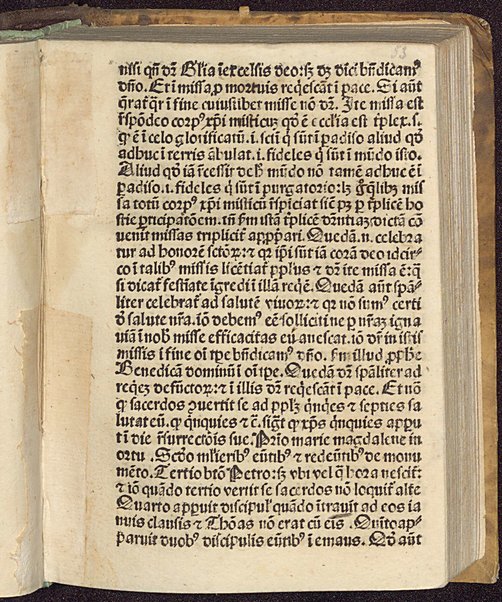 53
nisi qñ dr̄ Gl̓ia ī excelsis deo: sꝫ dꝫ dici bñdicamꝰ
dño. Et ī missa ꝓ mortuis reqͥescāt ī pace. Si aūt
q̄rat̄ qr̄ ī fine cuiuslibet misse nō dr̄. Ite missa est
r̄spōdeo corpꝰ xp̄i misticuꝫ qd̓ ē ecclia est tͥplex. s.
qͥ ē ī celo glorificatū. ī. sctī qͥ sūt ī padiso aliud qd̓
adhuc ī terris ābulat. i. fideles qͥ sūt ī mūdo isto.
Aliud qd̓ iā recessit de hͦ mūdo nō tamē adhuc ē ī
padiso. i. fideles qͥ sūt ī purgatorio: lꝫ
sa totū corpꝰ xp̄i misticū respiciat siē pꝫ ꝑ tͥplicē ho
stie ꝑticipatōem. tñ fm istā tͥplicē dictā cō
uenit missas triplicit̄ appͥari. Quedā .n. celebra
tur ad honorē sctōꝝ: ⁊ qꝛ ip̄i sūt iā corā deo idcir-
co ī talibꝰ missis licētiat̄ pplus ⁊ dr̄ ite missa ē: qͣ
si dicat̄ festīate īgredi ī illā reqͥē. Quedā aūt spāl-
liter celebrat̄ ad salutē viuoꝝ: ⁊ qꝛ nō sumꝰ certi
d̓ salute nr̄a. iō debemꝰ eē solliciti ne ꝑ nr̄aꝫ igna
uiā ī nob̓ misse efficacitas euanescat. iō dr̄ in istis
missis ī fine oī tp̄e bñdicamꝰ dño. fm illud ꝓphe
Benedicā dominū ī oī tp̄e. Quedā dr̄ spāliter ad
reqͥeꝫ defūctoꝝ: ⁊ ī illis dr̄ reqͥescāt ī pace. Et nō
qͥ sacerdos ꝯuertit se ad pplꝫ qͥnqͥes ⁊ septies sa
lutat eū. qͥ qͥnquies ⁊ c̄. sigͭ qͥ xp̄s qͥnquies appu
it ī die r̄surrectōis sue. Prīo marie magdalene in
ortu. Scd̓o mlieribꝰ eūtibꝰ ⁊ redeūtibꝰ de monu
mēto. Tertio btō Petro: sꝫ vbi vel qͣ hora nescit̄:
⁊ iō quādo tertio vertit se sacerdos nō loquit̄ alte
Quarto appuit discipul̓ quādo ītrauit ad eos ia
nuis clausis ⁊ Thōas nō erat cū eis. Quīto ap-
paruit duobꝰ discipulis eūtibꝰ ī emaus. Qd̓ aūt